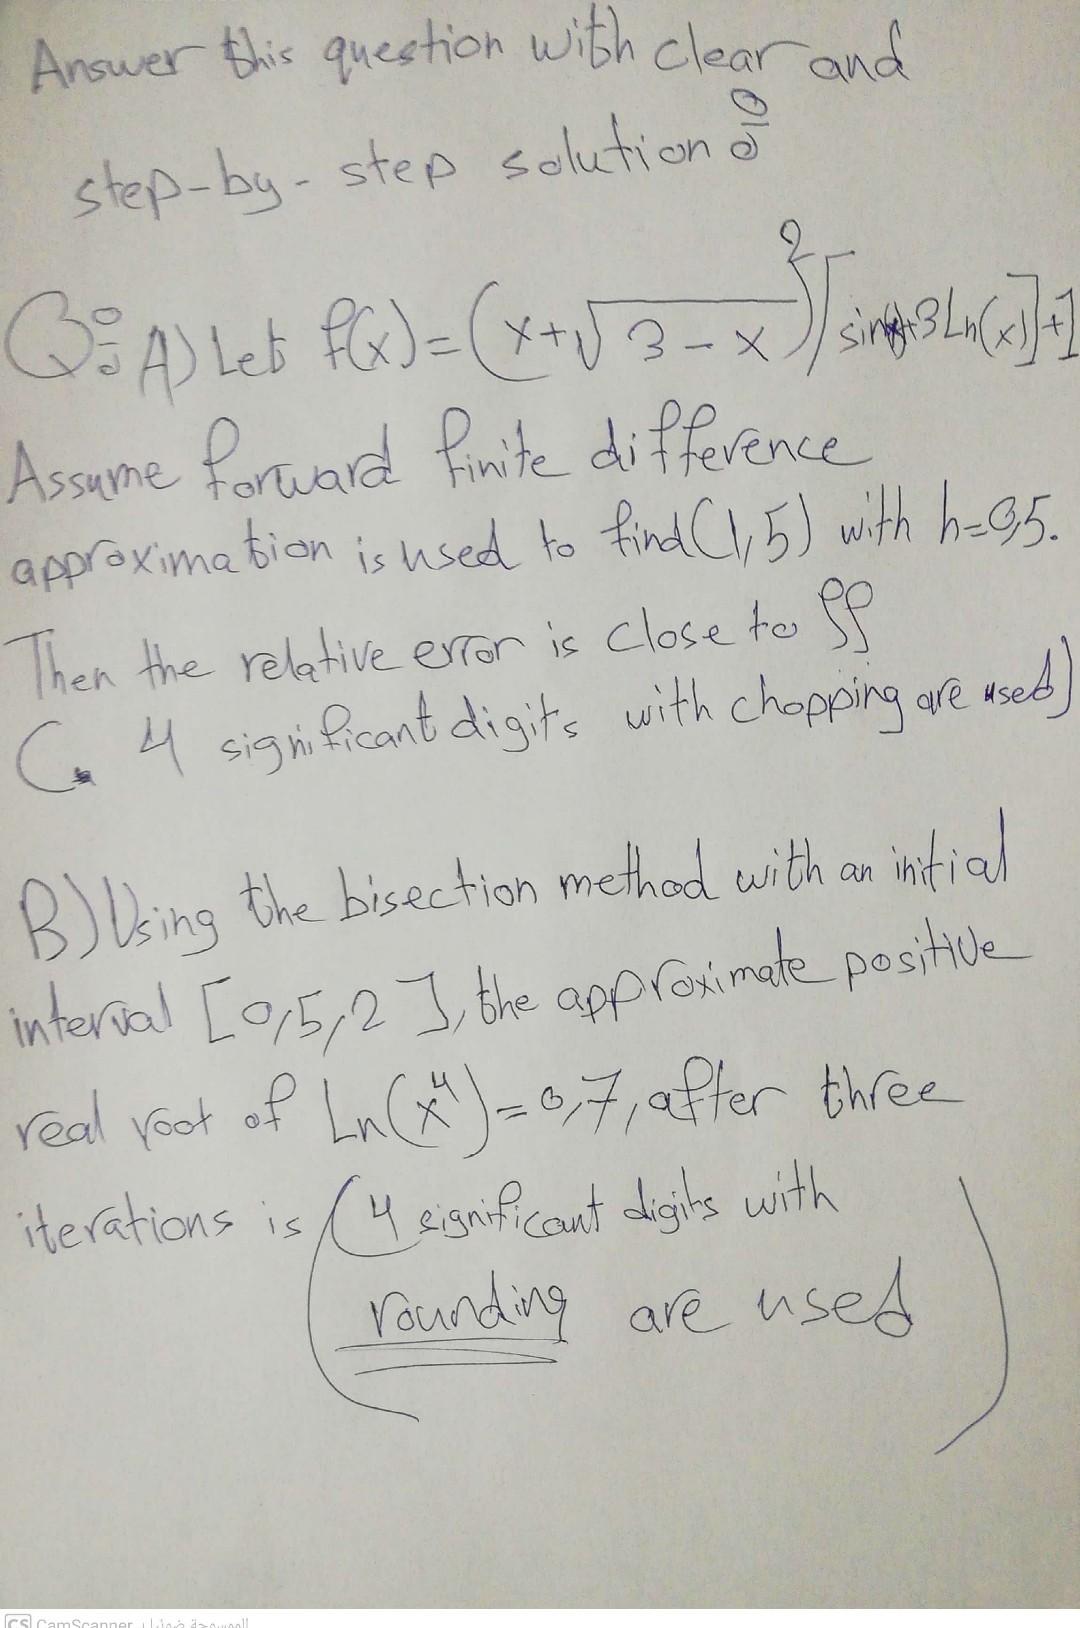 Answer this question with clear and
step-by-step solution :
Q: A) Let f(x) = (x+√3-x)² [sin(x)+3Ln(x)]+1
Assume forward finite difference
approximation is used to find (1,5) with h=0,5.
Then the relative error is close to
( 4 significant digits with chopping are used)
B) Using the bisection method with an initial
interval [0,5,2], the approximate positive
real root of Ln(x⁴)=0,7, after three
iterations is (4 significant digits with
rounding are used)
CS CamScanner الممسوحة ضوئيا بـ